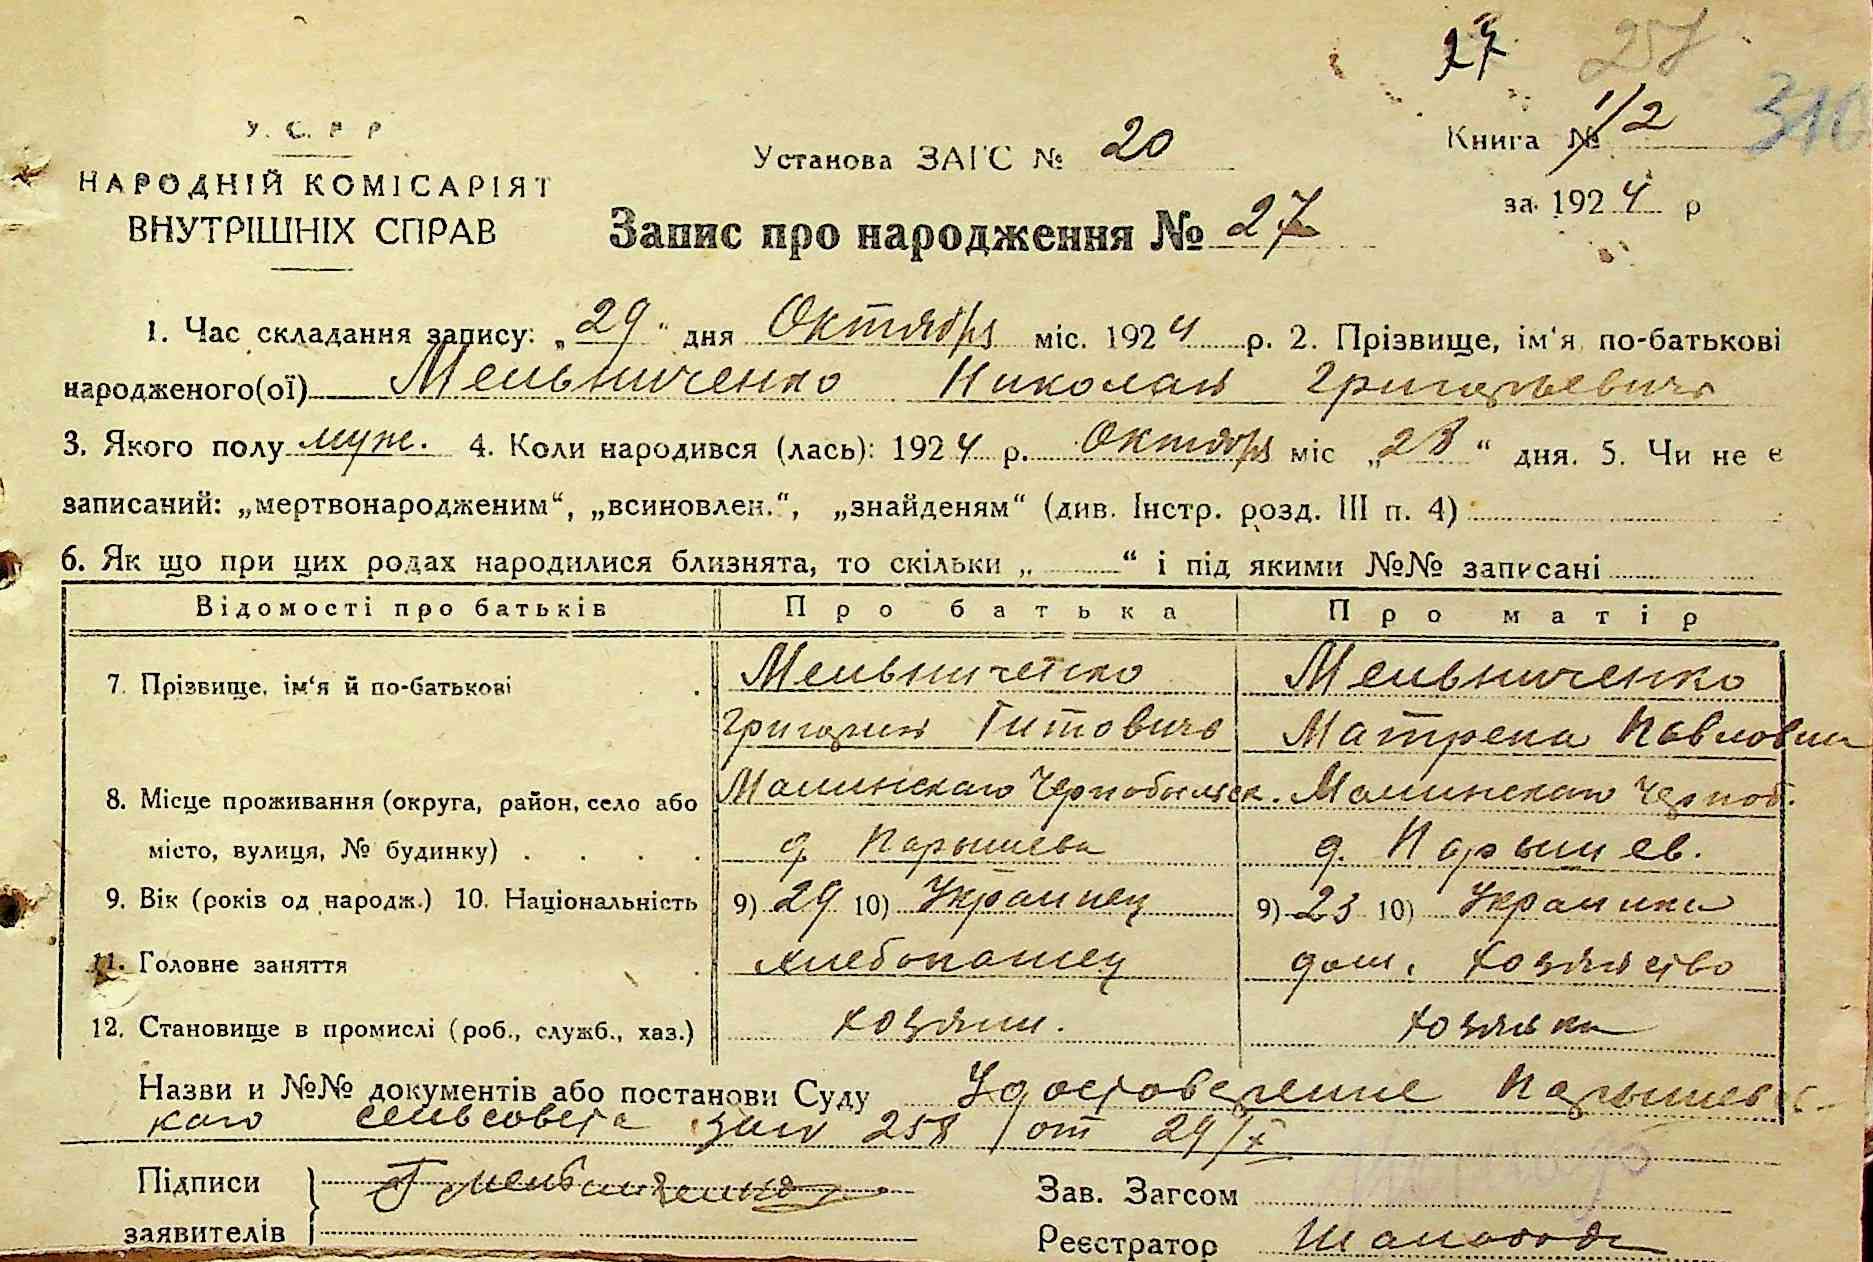 27 257
У. С. Р Р
Книга № 1/2 316
Установа ЗАГС № 20
НАРОДНІЙ КОМІСАРІЯТ
за 1924 р
ВНУТРІШНІХ СПРАВ
Запис про народження № 27
1. Час складання запису: „29“ дня Октября міс. 1924 р. 2. Прізвище, ім‘я по-батькові
народженого(ої) Мельниченко Николай Григорьевич
3. Якого полу муж. 4. Коли народився (лась): 1924 р. Октября міс „28“ дня. 5. Чи не є
записаний: „мертвонародженим“, „всиновлен.“, „знайденям“ (див. Інстр. розд. III п. 4)
6. Як що при цих родах народилися близнята, то скільки „ “ і під якими №№ записані
Відомості про батьків Про батька Про матір
7. Прізвище, ім‘я й по-батькові . Мельниченко Мельниченко
Григорий Титович Матрена Павловна
8. Місце проживання (округа, район, село або Малинскаго Чернобыльск. Малинскаго Черноб.
місто, вулиця, № будинку) . . . . д. Парышева д. Парышев.
9. Вік (років од народж.) 10. Національність 9) 29 10) Украинец 9) 23 10) Украинка
11. Головне заняття . хлебопашец дом. хозяйство
12. Становище в промислі (роб., служб., хаз.) хозяин. хозяйка
Назви и №№ документів або постанови Суду Удостоверение Парышевс-
каго сельсовета за № 258 от 29/X
Підписи Г Мельниченко Зав. Загсом
заявителів Реєстратор